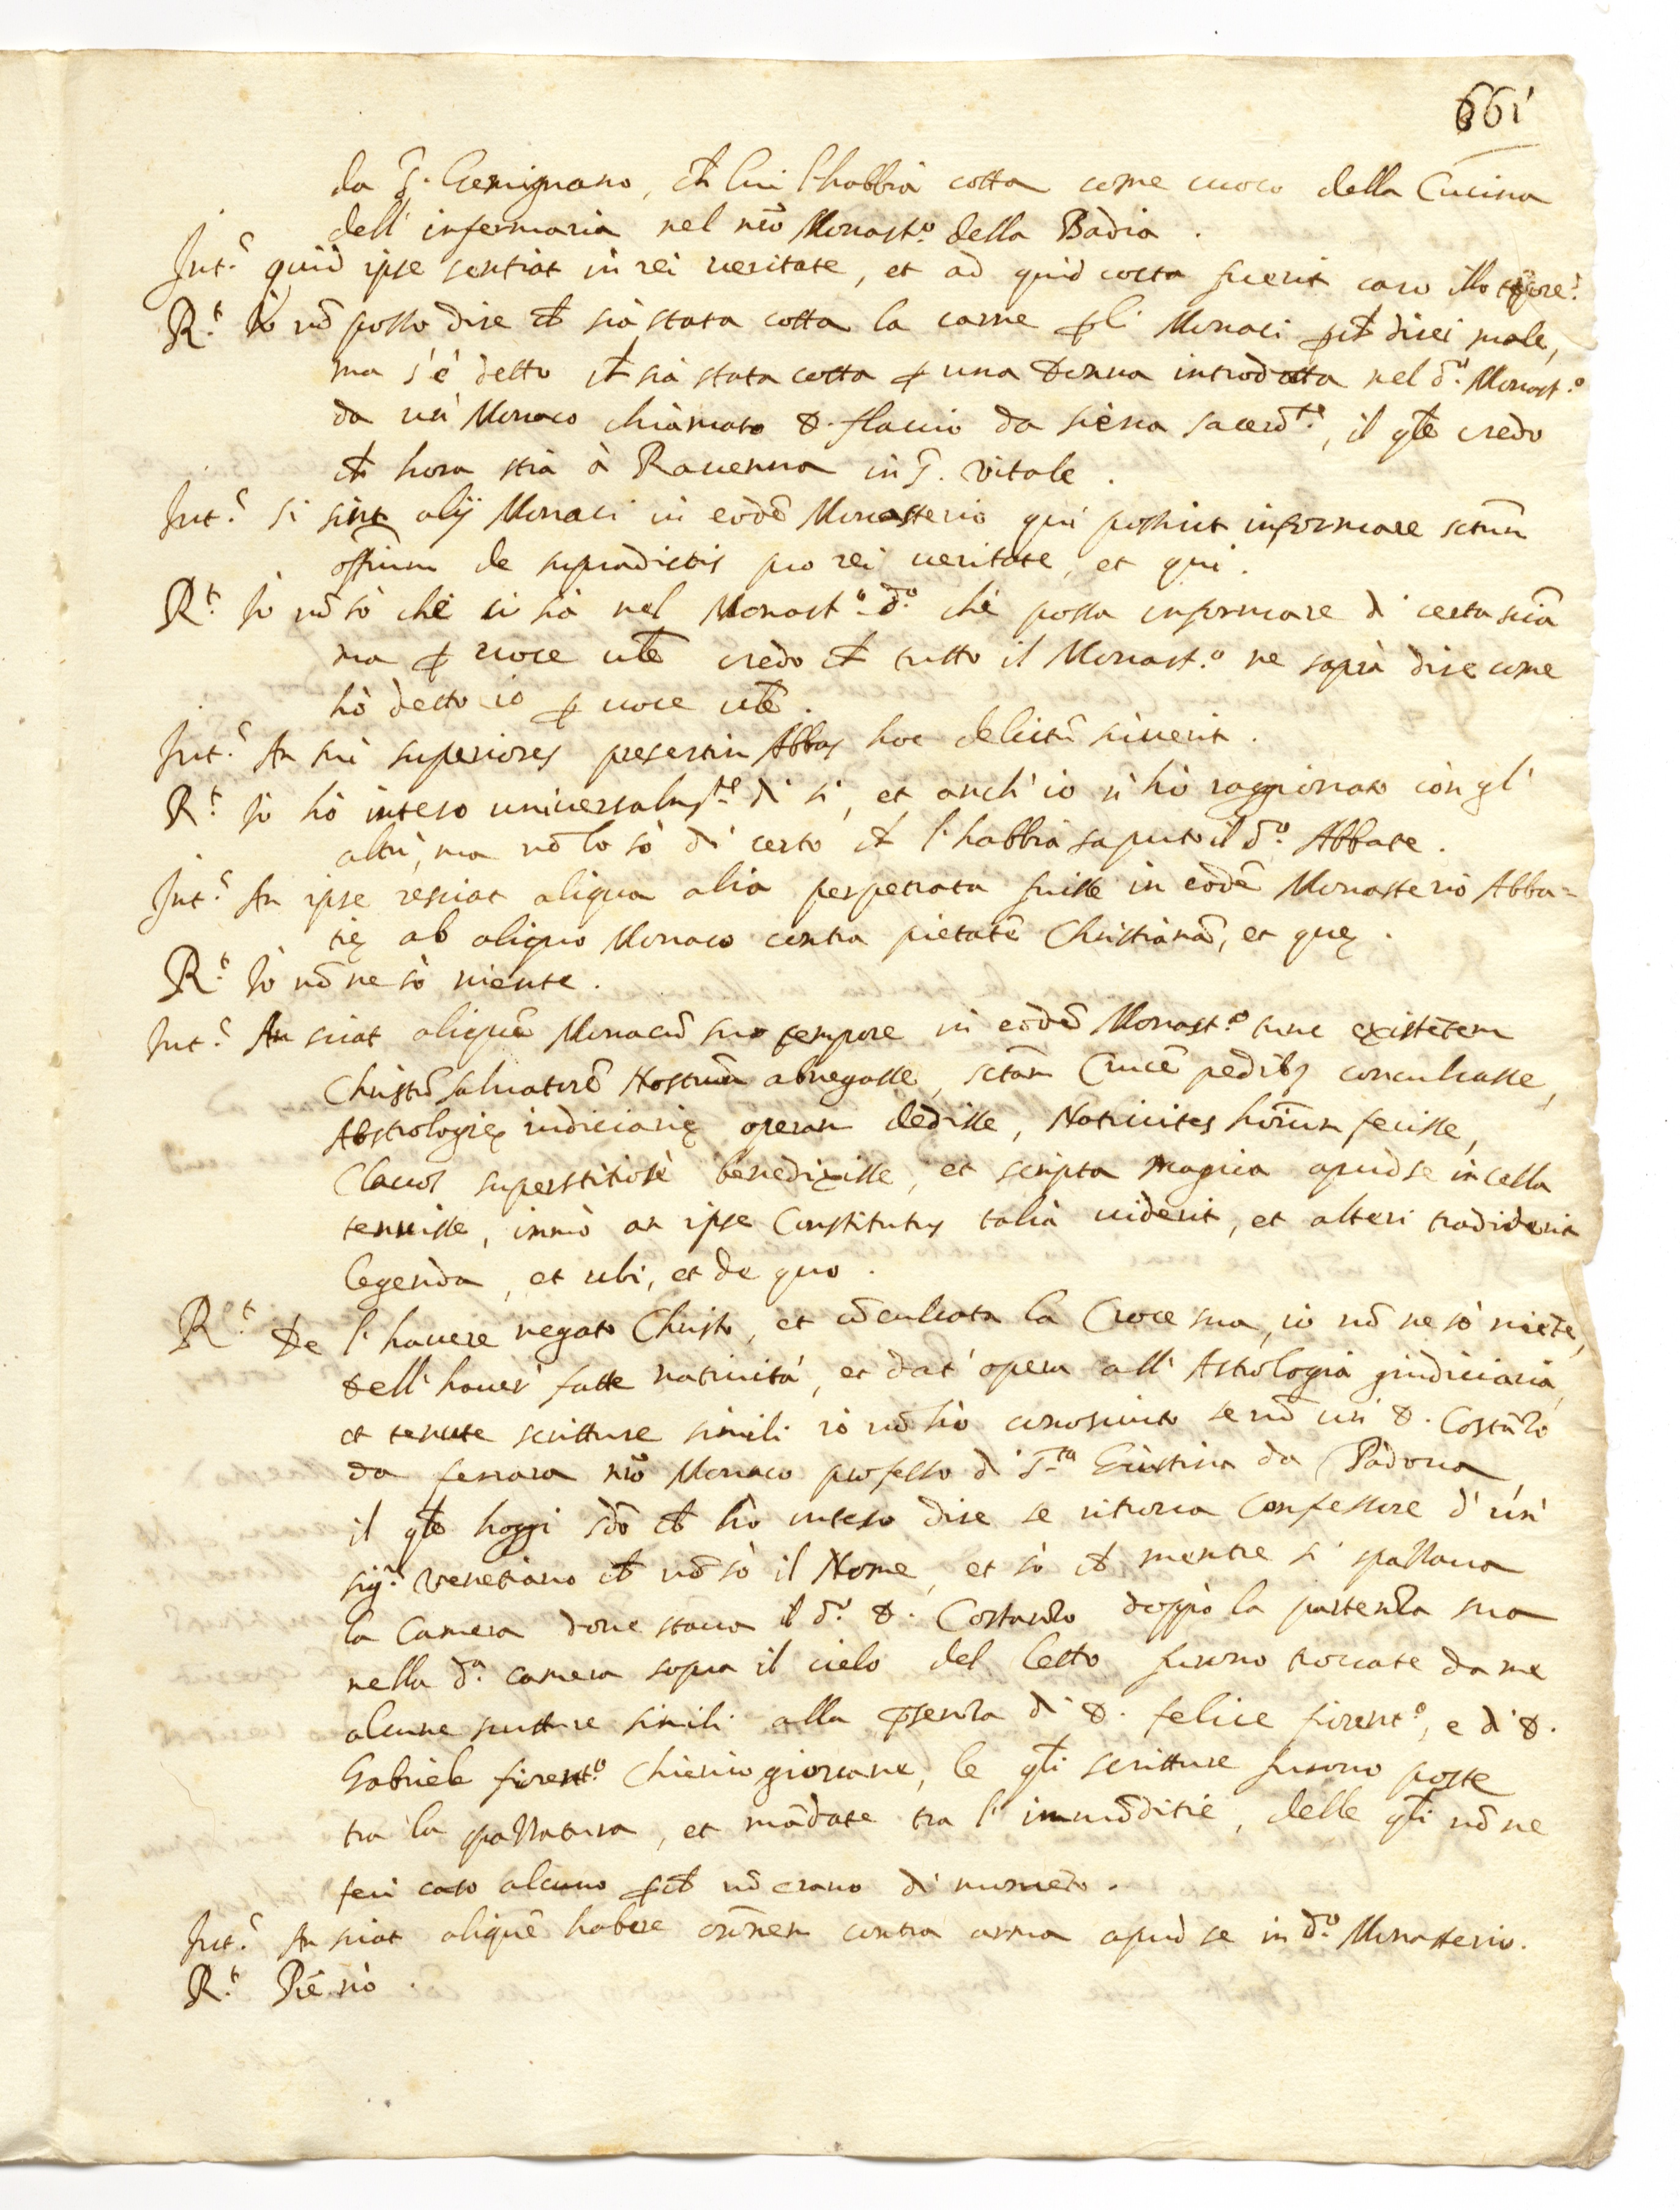 661
da S. Gemignano, ch̃ lui l'habbia cotta come cuoco della Cucina
dell' infermaria nel nr̃o Monast.º della Badia .
Int.s quid ipse sentiat in rei veritate, et ad quid cocta fuerit caro illo tp̃ore.
R.t Io nõ posso dire ch̃ sia stata cotta la carne p̱ li Monaci p̱ch̃ direi male,
ma s'è detto ch̃ sia stata cotta p̱ una donna introdotta nel d.º Monast.º
da un Monaco chiamato D. flavio da siena sacerd.te, il q̃le credo
ch̃ hora stia à Ravenna in S. Vitale .
Int.s si sint alij Monaci in eodẽ Monasterio qui possint informare sctũm
offitium de supradictis pro rei veritate, et qui .
R.t Io nõ sò che ci sia nel Monast.º d.º che possa informare di certa sciã
ma p̱ voce ut̃e credo ch̃ tutto il Monast.º ne saprà dire come
hò detto io p̱ voce ut̃e .
Int.s An sui superiores presertim Abbas hoc delictũ sciverit .
R.t Io hò inteso universalm.te di si, et anch' io n' hò raggionato con gl'
altri, ma nõ lo sò di certo ch̃ l'habbia saputo il d.º Abbate .
Int.s An ipse resciat aliqua alia perpetrata fuisse in eodẽ Monasterio Abba-
tię ab aliquo Monaco contra pietatẽ Christianã, et quę .
R.t Io nõ ne sò niente .
Int.s An sciat aliquẽ Monacũ suo tempore in eodẽ Monast.º tunc existẽtem
Christũ Salvatorẽ Nostrum abnegasse, sctam Crucẽ pedibs conculcasse,
Abstrologię iudiciarię operam dedisse, Nativites hoĩum fecisse,
Clavos superstitiosè benedixisse, et scripta magica apud se in cella
tenuisse, immò an ipse Constitutus talia viderit, et alteri tradiderit
legenda, et ubi, et de quo .
R.t De l' havere negato Christo, et cõculcata la Croce sua, io nõ ne sò niẽte,
dell' haver' fatte natività, et dat' opera all' Astrologia giudiciaria,
et tenute scritture simili io nõ hò conosciuto se nõ un D. Costãzo
da ferrara nr̃o Monaco professo di S.ta Giustina da Padova
il q̃le hoggi sdõ ch̃ hò inteso dire se ritrova Confessore d' un'
sig.r Venetiano ch̃ nõ sò il Nome, et sò ch̃ mentre si spazzava
la Camera dove stava il d.º D. Costanzo doppò la partenza sua
nella d.a camera sopra il cielo del letto furono trovate da me
alcune scritture simili alla p̱senza di D. felice fiorent.º, e di D.
Gabriele fiorent.º Chierico giovane, le q̃li scritture furono poste
tra la spazzatura, et mãdate tra l' immõditie, delle q̃li nõ ne
feci caso alcuno p̱ch̃ nõ erano di momẽto .
Int.s An sciat aliquẽ habere or̃nem contra arma apud se in d.º Monasterio.
R.t P̃e nò .